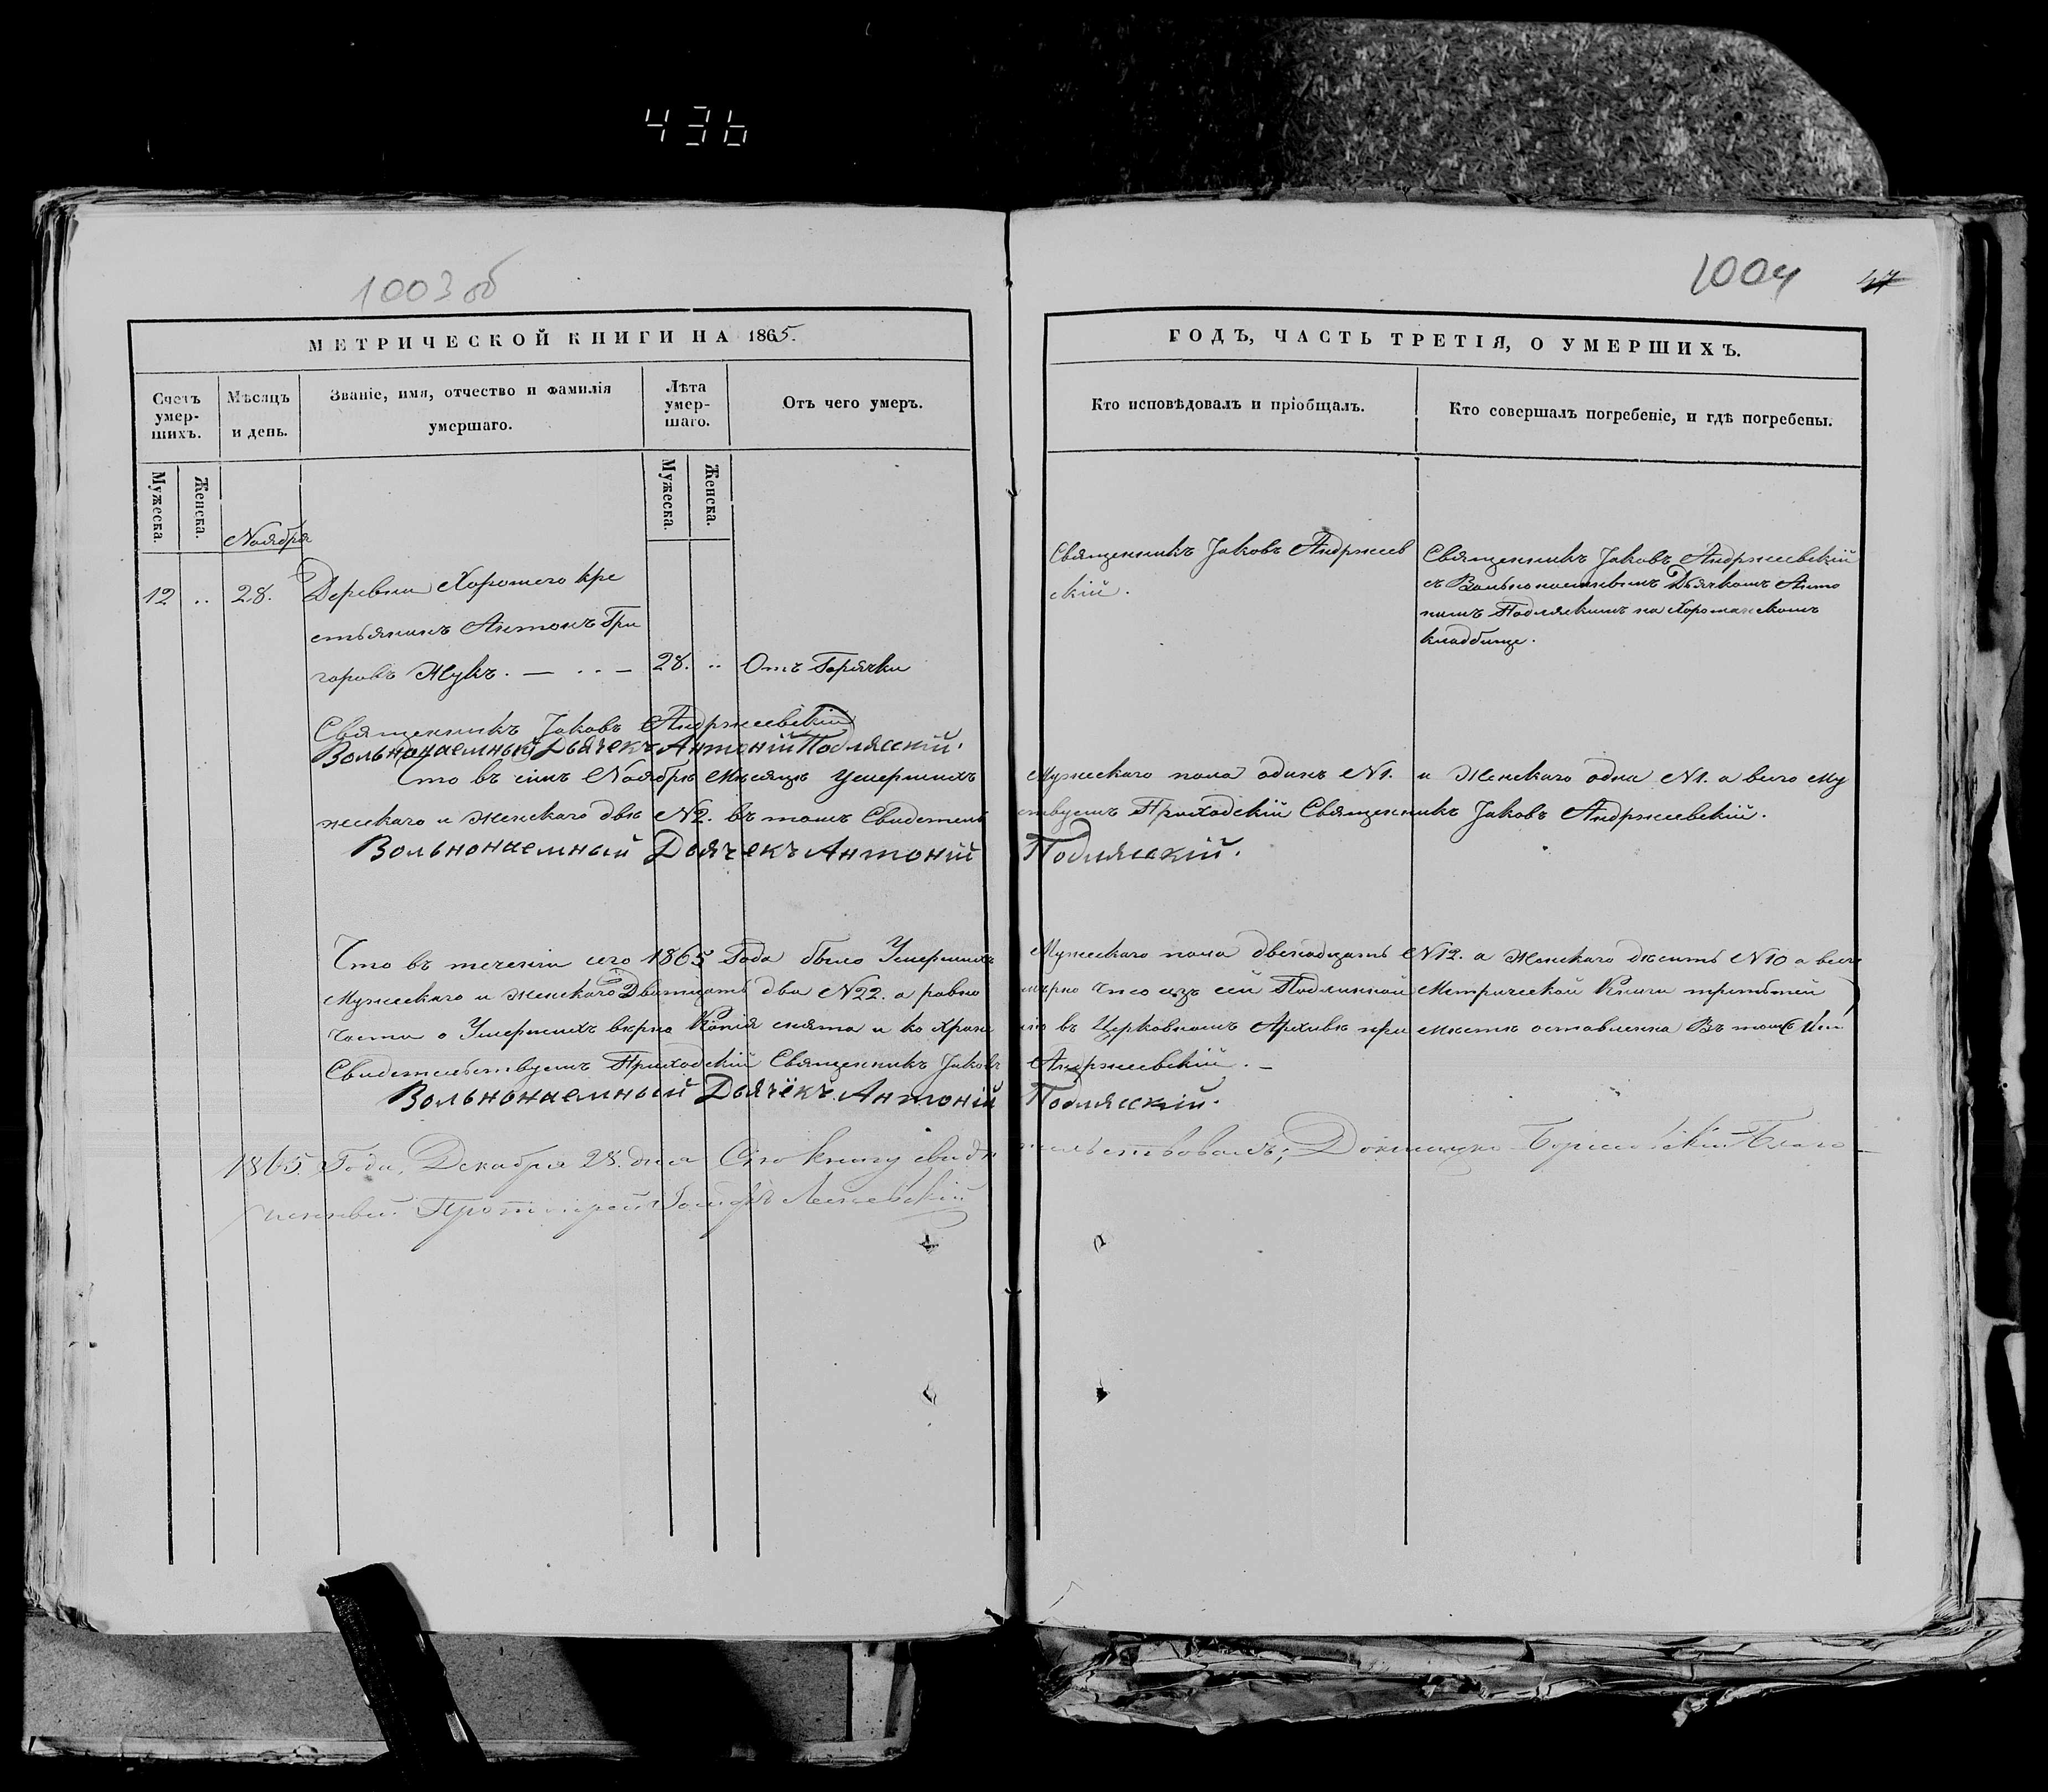 436
1003об
1004 47
МЕТРИЧЕСКОЙ КНИГИ НА 1865.
ГОДЪ, ЧАСТЬ ТРЕТІЯ, О УМЕРШИХЪ.
Счетъ умер-
шихъ.
Мѣсяцъ
и день.
Званіе, имя, отчество и фамилія
умершаго.
Лѣта
умер-
шаго.
Отъ чего умеръ.
Кто исповѣдовалъ и пріобщалъ.
Кто совершалъ погребеніе, и гдѣ погребены.
Мужеска.
Женска.
Мужеска.
Женска.
Ноября
12 .. 28.
Деревни Хорошего кре
стьянинъ Антонъ Гри
горовъ Жукъ. — .. —
28. ..
Отъ Горячки
Священникъ Јаковъ Андржеев
скій.
Священникъ Јаковъ Андржеевскій
съ Вольнонаемнымъ Дьячкомъ Анто
ніемъ Подляскимъ на
кладбище.
Священникъ Јаковъ Андржеевскій
Вольнонаемный Дьячекъ Антоній Подляскій.
Что въ симъ Ноябрѣ Мѣсяцѣ Умершихъ Мужескаго пола одинъ N1. и Женскаго одна N1. а всего Му
жескаго и Женскаго двѣ N2. въ томъ Свидетель ствуетъ Приходскій Священникъ Јаковъ Андржеевскій.
Вольнонаемный Дьячекъ Антоній Подляскій.
Что въ теченіи сего 1865 Года было Умершихъ Мужескаго пола двенадцать N12. а Женскаго десить N10 а всего
Мужескаго и Женскаго Двадцать два N22. а равно мѣрно что изъ сей Подлинной Метрической Книги третьтей
части о Умершихъ вѣрна Копія снята и ко Хране нію въ Церковномъ Архивѣ при мѣстѣ оставленна Въ томъ
Свидетельствуетъ Приходскій Священникъ Јаковъ Андржеевскій. —
Вольнонаемный Дьячекъ Антоній Подляскій.
1865. Года, Декабря 28. дня Сію книгу свидѣ тельствовалъ; Докшицко Борисовскій Благо—
чинный Протоіерей Іосифъ